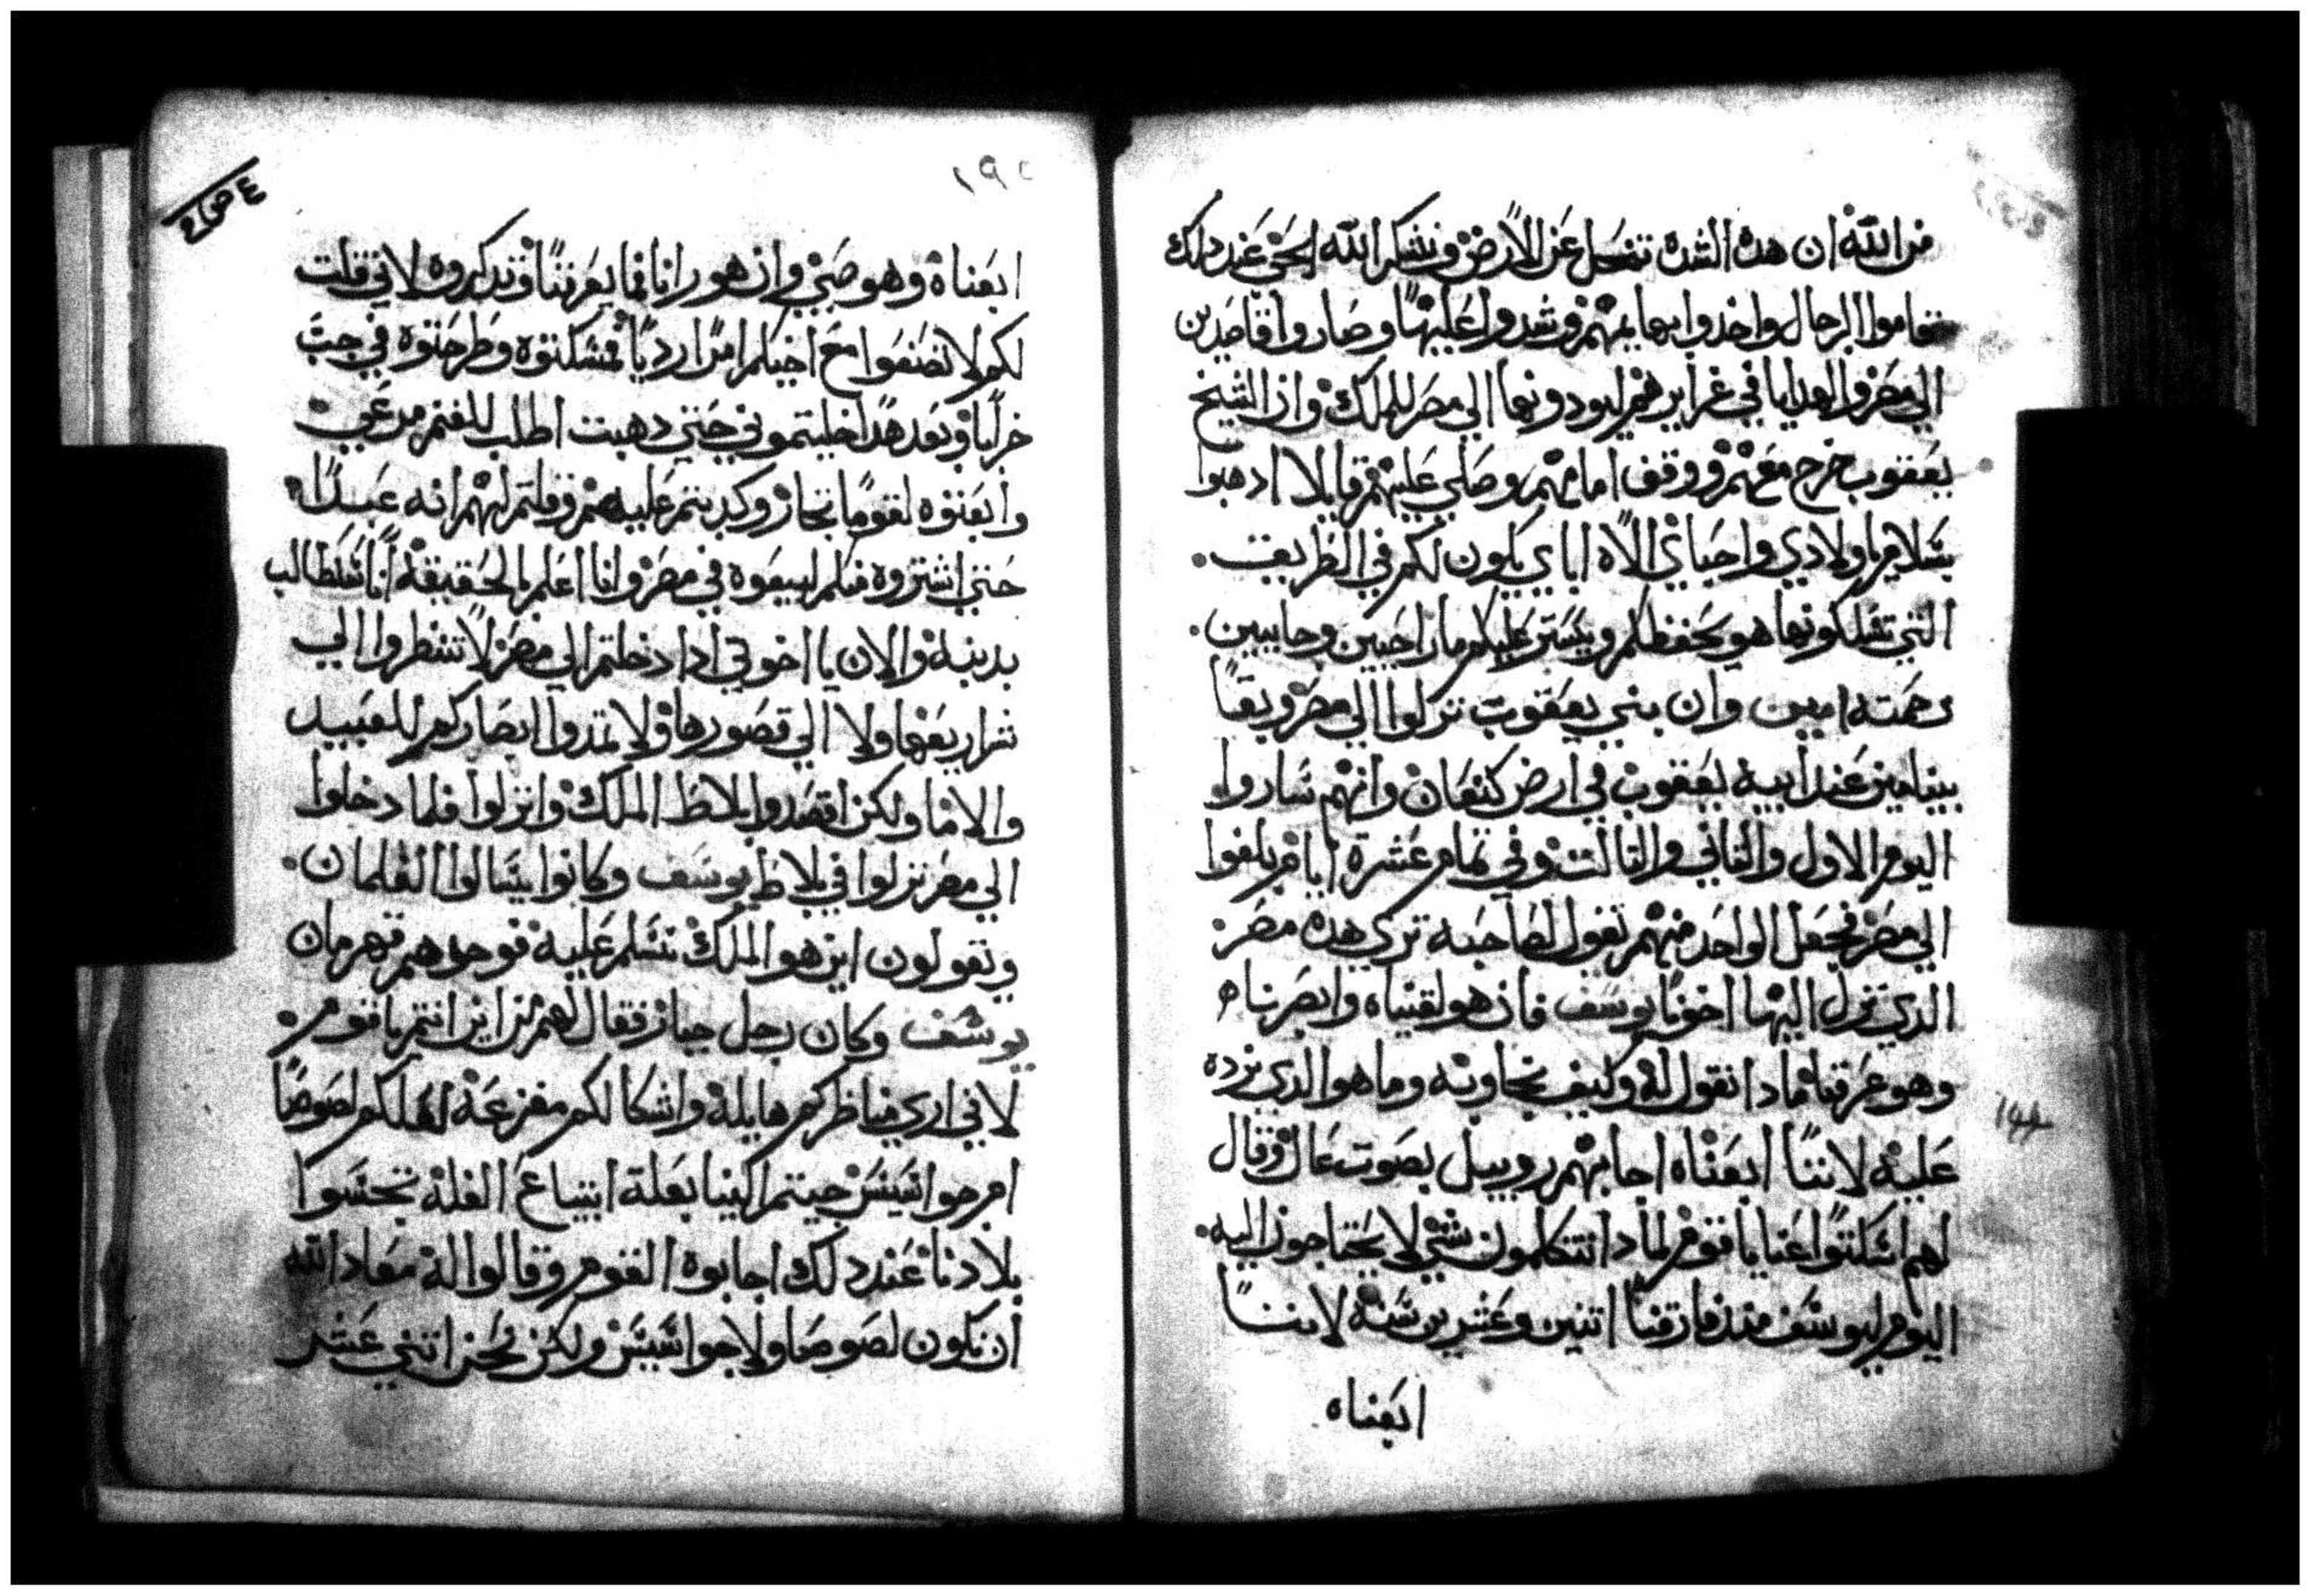 من الله ان هده الشده تنحل عن الارض ونشكر الله الحي عند دلك
تقاموا الرجال واخدوا بهايمهم وشدوا عليها وصاروا قاصدين
الي مصر والهدايا في غراير هم ليودونها الي مصر للملك وان الشيخ
يعقوب خرج معهم ووقف امامهم وصلي عليهم قايلا ادهبوا
بسلام ياولادي واحباي الاه اباي يكون لكم في الطريقت
التي تسلكونها هو يحفظكم ويستر عليكم مازاحيين وجايين
رحمته امين وان بني يعقوب نزلوا الي مصر وبقا
بينامين عند ابيه يعقوب في ارض كنعان وانهم ساروا
اليوم الاول والتاني والتالت وفي تمام عشرة ايام بلغوا
الي مصر فجعل الواحد منهم تقول لصاحبه تري هده مصر
الدي نزل اليها اخونا يوسف فان هو لقيناه وابصرناه
وهو عرفنا مادا نقول له وكيف نجاوبه وما هو الدي نرده
عليه لاننا ابعناه اجابهم روبيل بصوت عال وقال
لهم اسكتوا عنا ياقوم لمادا تتكلمون شي لا يحتاجون اليه
اليوم ليوسف مند فارقنا اتنين وعشرين سنه لاننا
ابعناه
١٩٥
ابعناه وهو صبي وان هو رانا فما يعرفنا وتدكروه لاني قلت
لكم لا تصنعوا مع اخيكم امرا رديا فمسكتوه وطرحتوه في جب
خرابا وبعد هدا خليتموني حتي دهبت اطلب للغنم مرعي
وابعتوه لقوما تجاز وكدبتم عليهم وقلتم لهم انه عبدا
حتي اشتروه منكم ليبيعوه في مصر وانا اعلم بالحقيقه اننا نطالب
بدنبه والان يا اخوتي ادا دخلتم الي مصر لا تنظروا الي
تزاريعها ولا الي قصورها ولا تمدوا ابصاركم للعبيد
والاما ولكن اقصدوا بلاط الملك وانزلوا فلما دخلوا
الي مصر نزلوا في بلاط يوسف وكانوا يسالوا الغلمان
وتقولون اين هو الملك نسلم عليه فوجدهم قهرمان
يوسف وكان رجل جبار فقال لهم من اين انتم ياقوم
لاني اري مناظركم هايله واشكالكم مفزعه لعلكم لصوصا
ام جواسيس جيتم الينا بعلة ابتياع الغله تجسوا
بلادنا عند دلك اجابوه القوم وقالوا له معاد الله
ان نكون لصوصا ولا جواسيس ولكن نحن اتني عشر